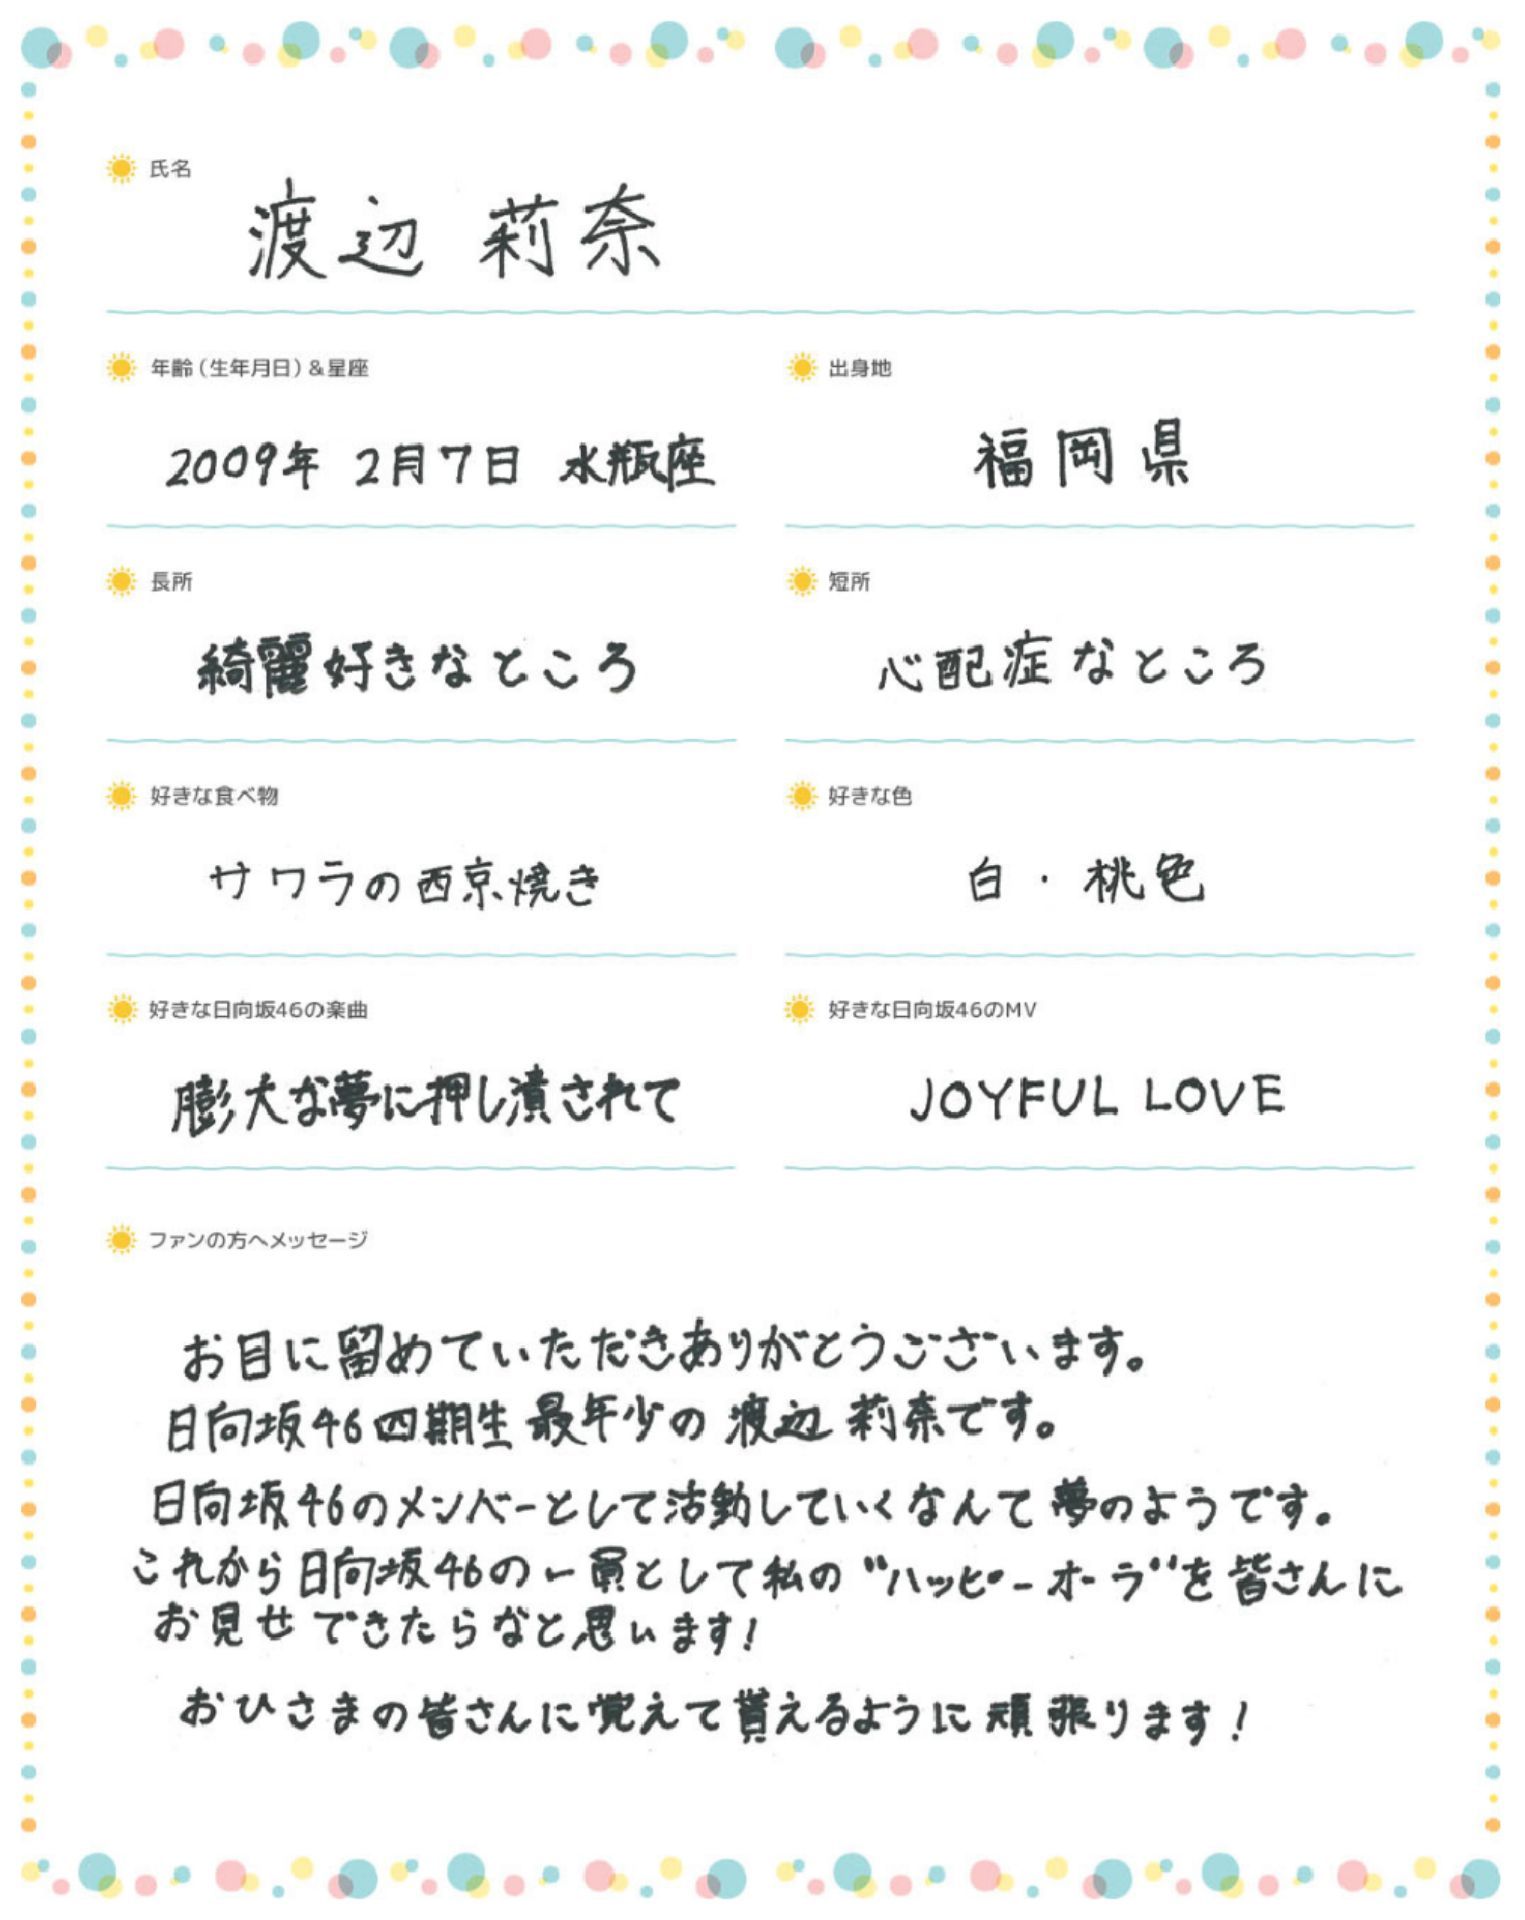 氏名
渡辺 莉奈
年齢(生年月日)&星座
2009年 2月7日 水瓶座
出身地
福岡県
長所
綺麗好きなところ
短所
心配症なところ
好きな食べ物
サワラの西京焼き
好きな色
白・桃色
好きな日向坂46の楽曲
膨大な夢に押し潰されて
好きな日向坂46のMV
JOYFUL LOVE
ファンの方へメッセージ
お目に留めていただきありがとうございます。
日向坂46四期生 最年少の 渡辺 莉奈です。
日向坂46のメンバーとして活動していくなんて 夢のようです。
これから日向坂46の一員として私の"ハッピーオーラ"を皆さんに
お見せできたらなと思います!
おひさまの皆さんに覚えて貰えるように頑張ります!